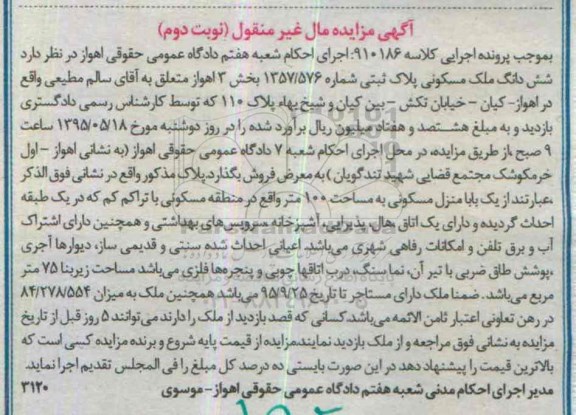 آگهی مزایده مال غیر منقول (نوبت دوم)
بموجب پرونده اجرایی کلاسه ۹۱۰۱۸۶:اجرای احکام شعبه هفتم دادگاه عمومی حقوقی اهواز در نظر دارد
شش دانگ ملک مسکونی پلاک ثبتی شماره ۱۳۵۷/۵۷۶ بخش ۳ اهواز متعلق به آقای سالم مطیعی واقع
در اهواز- کیان – خیابان تکش – بین کیان و شیخ بهاء پلاک ۱۱۰ که توسط کارشناس رسمی دادگستری
بازدید و به مبلغ هشتصد و هفتاد میلیون ریال برآورد شده را در روز دوشنبه مورخ ۱۳۹۵/۰۵/۱۸ ساعت
۹ صبح ،از طریق مزایده، در محل اجرای احکام شعبه ۷ دادگاه عمومی حقوقی اهواز (به نشانی اهواز – اول
خرمکوشک مجتمع قضایی شهید تندگویان) به معرض فروش بگذارد.پلاک مذکور واقع در نشانی فوق الذکر
،عبارتند از یک بابا منزل مسکونی به مساحت ۱۰۰ متر واقع در منطقه مسکونی با تراکم کم که در یک طبقه
احداث گردیده و دارای یک اتاق ،هال، پذیرایی، آشپزخانه سرویس های بهداشتی و همچنین دارای اشتراک
آب و برق تلفن و امکانات رفاهی شهری می‌باشد. اعیانی احداث شده سنتی و قدیمی ساز، دیوارها آجری
،پوشش طاق ضربی با تیر آن، نما سنگ، درب اتاقها چوبی و پنجره‌ها فلزی می‌باشد مساحت زیربنا ۷۵ متر
مربع می‌باشد. ضمنا ملک دارای مستاجر تا تاریخ ۹۵/۹/۲۵ می‌باشد.همچنین ملک به میزان ۸۴/۲۷۸/۵۵۴
در رهن تعاونی اعتبار ثامن الائمه می‌باشد.کسانی که قصد بازدید از ملک را دارند می‌توانند ۵ روز قبل از تاریخ
مزایده به نشانی فوق مراجعه و از ملک بازدید نمایند.مزایده از قیمت پایه شروع و برنده مزایده کسی است که
بالاترین قیمت را پیشنهاد دهد در این صورت بایستی ده درصد کل مبلغ را فی المجلس تقدیم اجرا نماید.
مدیر اجرای احکام مدنی شعبه هفتم دادگاه عمومی حقوقی اهواز – موسوی ۳۱۲۰